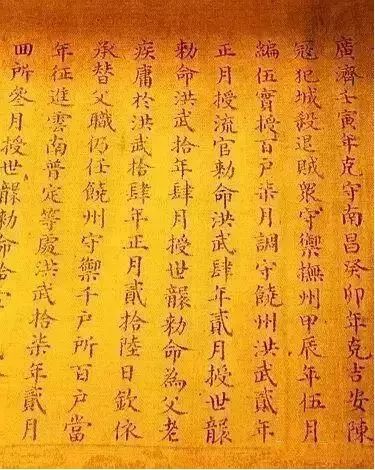 廣濟壬寅年克守南昌癸卯年克吉安陳
冦犯城殺退賊衆守禦撫州甲辰年伍月
編伍實授百戶柒月調守饒州洪武貳年
正月授流官勅命洪武肆年貳月授世襲
勅命洪武拾年肆月授世襲勅命為父老
疾庸於洪武拾肆年正月貳拾陸日欽依
承替父職仍任饒州守禦千戶所百戶當
年征進雲南普定等處洪武拾柒年貳月
囬所叁月授世襲勅命